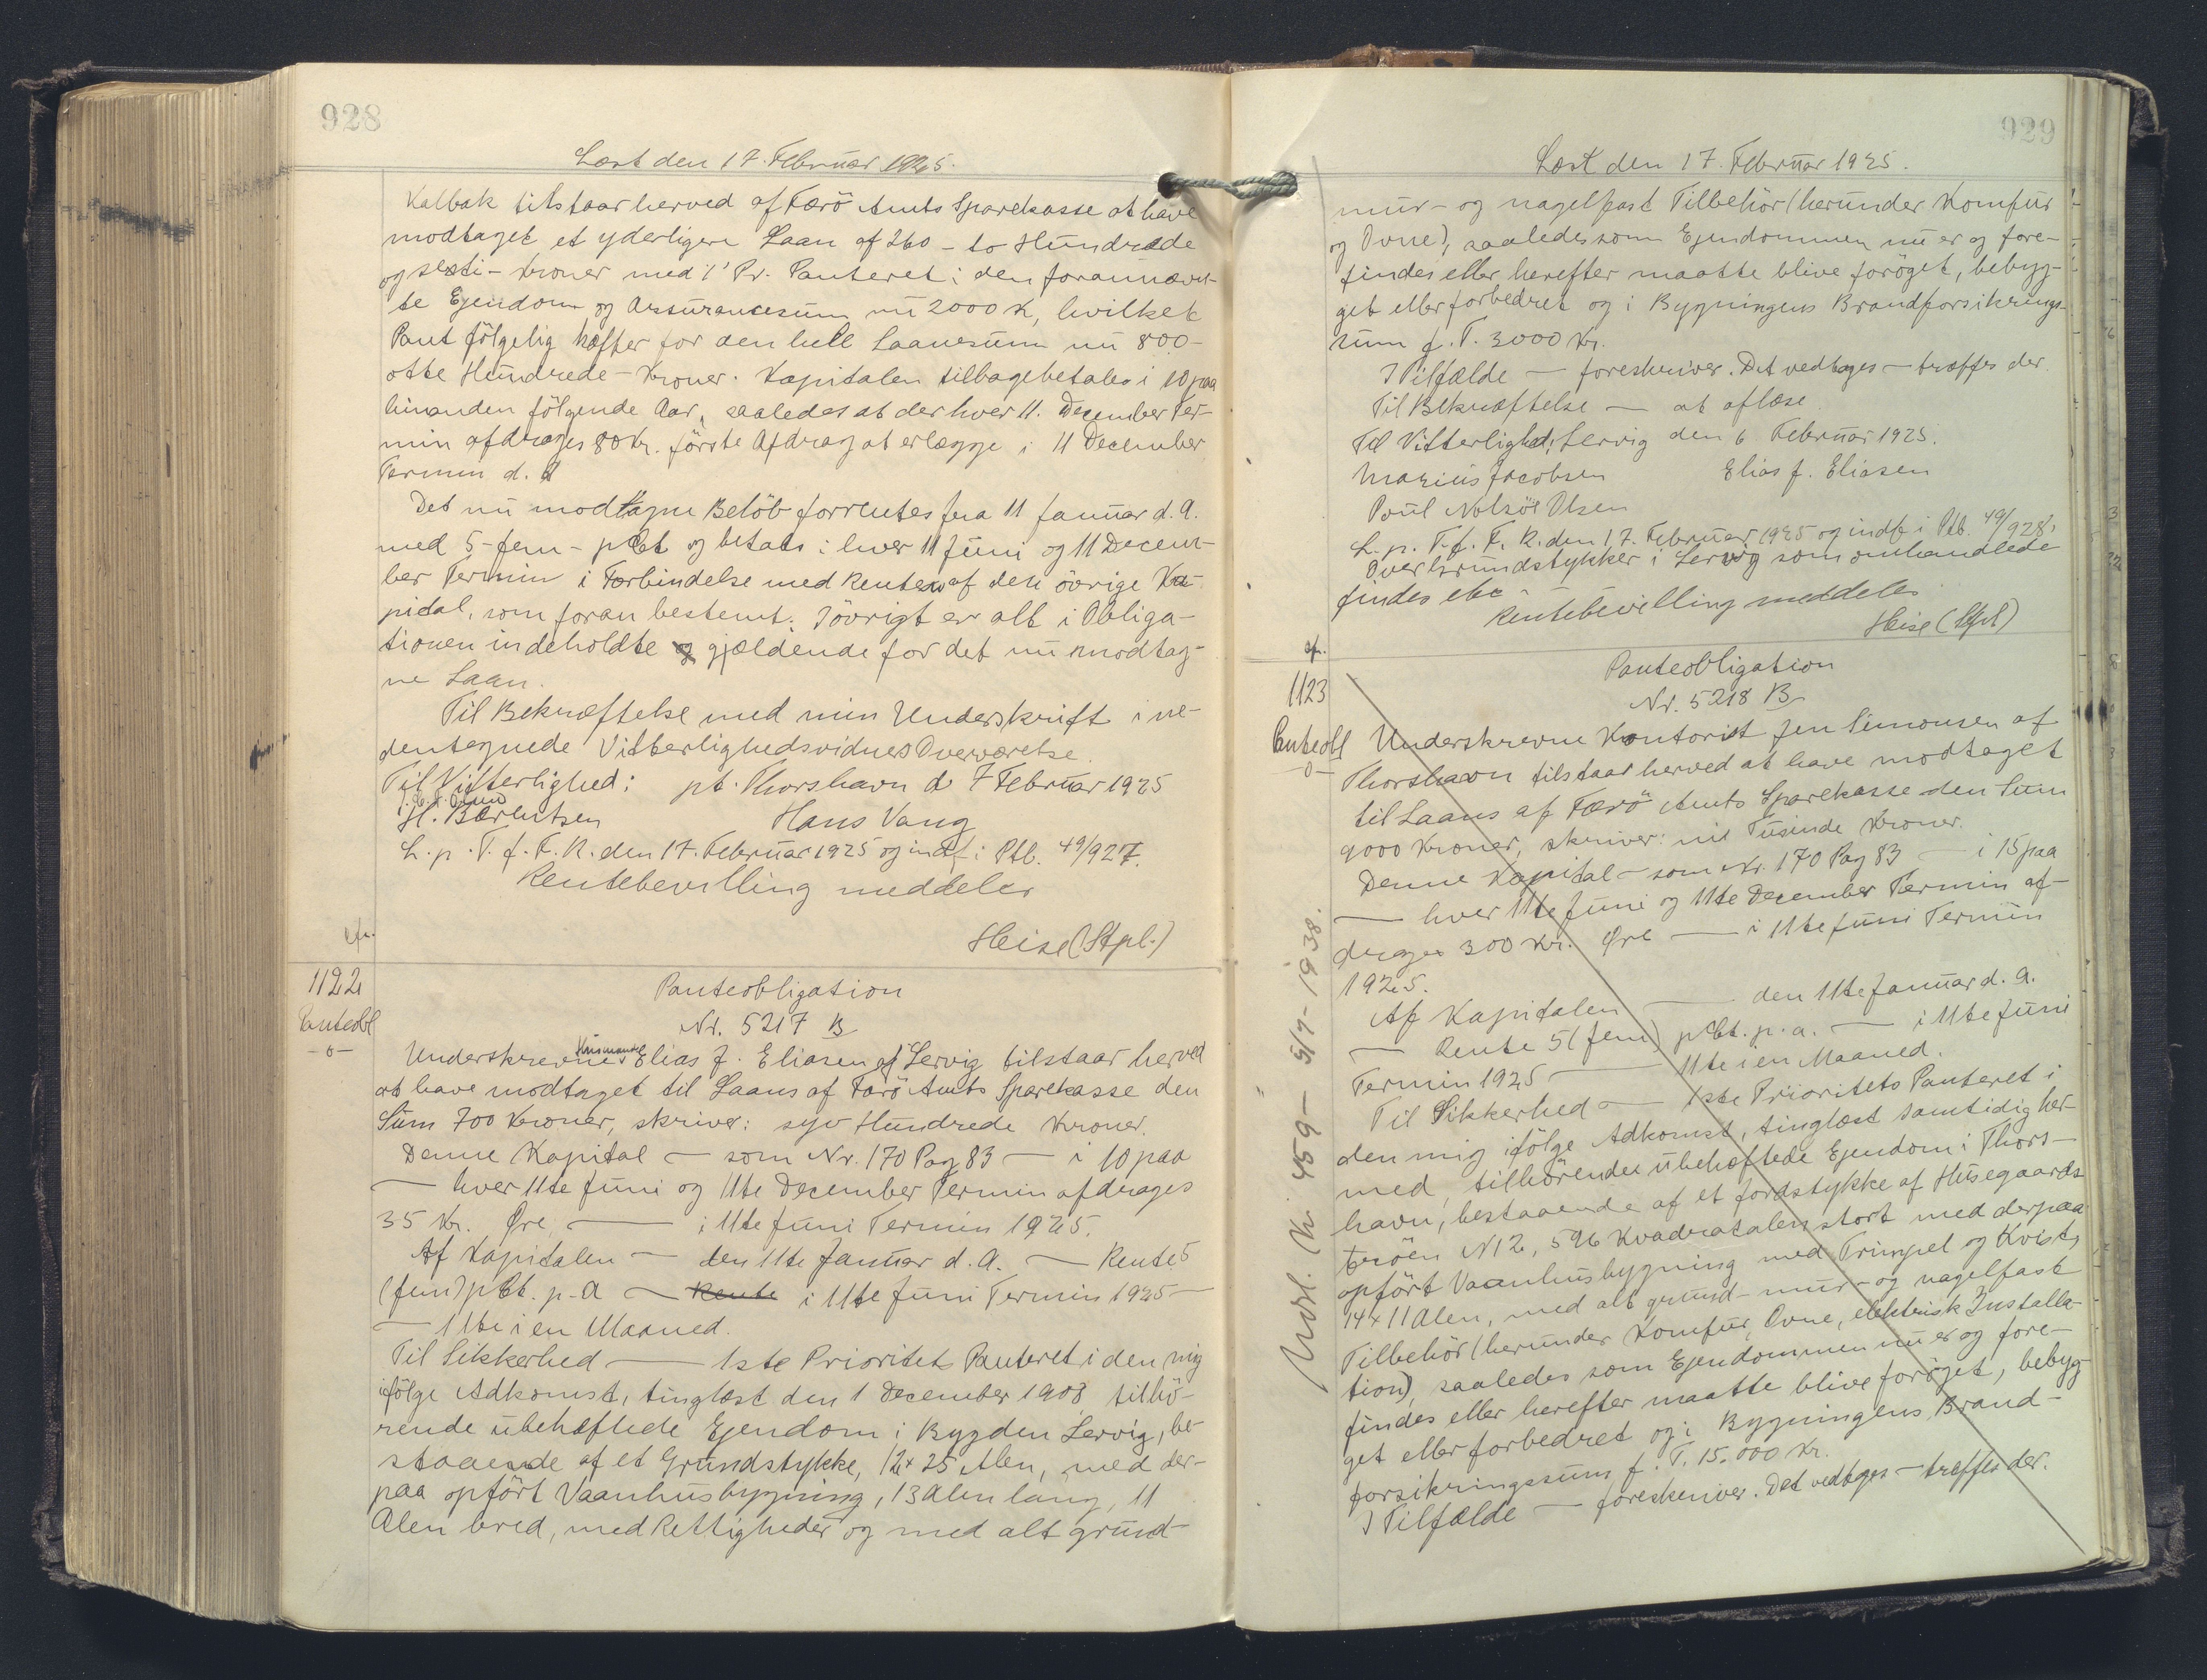 928
Læst den 17. Februar 1925.
Kalbak tilstaar herved af Færö Amts Sparekasse at have
modtaget et yderligere Laan af 260 - to Hundrede
og sexti - Kroner med 1' Pr. Panteret i den forannævn-
te Ejendom og Assurancesum nu 2000 K, hvilket
Pant fölgelig hæfter for den hele Laanesum nu 800 -
otte Hundrede - Kroner. Kapitalen tilbagebetales i 10 paa
hinanden fölgende Aar, saaledes at der hver 11. December Ter-
min afdrages 80 Kr. förste Afdrag at erlægge i 11 December
Termin d. A
Det nu modtagne Belöb forrentes fra 11 Januar d. A.
med 5 - fem - pCt og betales i hver 11 Juni og 11 Decem-
ber Termin i Forbindelse med Renten af den övrige Ka-
pital, som foran bestemt. Iövrigt er alt i Obliga-
tionen indeholdte gjældende for det nu modtag-
ne Laan.
Til Bekræftelse med min Underskrift i ne-
dentegnede Vitterlighedsvidners Overværelse.
Til Vitterlighed: pt. Thorshavn d. 7 Februar 1925
H. Bærentsen Hans Vang
L. p. T. f. F. R. den 17. Februar 1925 og indf. i Ptb. 49/927.
Rentebevilling meddeles
Heise (Stpl.)
1122
Panteobl
-o-
Panteobligation
Nr. 5217 B
Underskrevne Elias J. Eliasen af Lervig tilstaar herved
at have modtaget til Laans af Færö Amts Sparekasse den
Sum 700 Kroner, skriver: syv Hundrede Kroner.
Denne Kapital — som Nr. 170 Pag 83 — i 10 paa
— hver 11te Juni og 11te December Termin afdrages
35 Kr. Øre — i 11te Juni Termin 1925.
Af Kapitalen — den 11te Januar d. A. — Rente 5
(fem) pCt. p. A — Rente i 11te Juni Termin 1925 —
— 11te i en Maaned.
Til Sikkerhed — 1ste Prioritet Panteret i den mig
ifölge Adkomst, tinglæst den 1 December 1903 tilhö-
rende ubehæftede Ejendom i Bygden Lervig, be-
staaende af et Grundstykke, 12 x 25 Alen, med der-
paa opfört Vaanhusbygning, 13 Alen lang, 11
Alen bred, med Rettigheder og med alt grund-
929
Læst den 17. Februar 1925.
mur- og nagelfast Tilbehör (herunder Komfur
og Ovne), saaledes som Ejendommen nu er og fore-
findes eller herefter maatte blive foröget, bebyg-
get eller forbedret og i Bygningens Brandforsikrings-
sum f. T. 3000 Kr.
I Tilfælde — foreskriver. Det vedtages — træffes der.
Til Bekræftelse — at aflæse.
Til Vitterlighed: Lervig den 6 Februar 1925.
Marius Jacobsen Elias J. Eliasen
Poul Nolsöe Olsen
L. p. T. f. F. R. den 17. Februar 1925 og indf. i Ptb. 49/928.
Over Grundstykker i Lervig som omhandlede
findes ebc
Rentebevilling meddeles
Heise (Stpl)
1123
Panteobl
-o-
Panteobligation
Nr. 5218 B
Underskrevne Kontorist Jen Simonsen af
Thorshavn tilstaar herved at have modtaget
til Laans af Færö Amts Sparekasse den Sum
9000 Kroner, skriver: ni Tusinde Kroner.
Denne Kapital — som Nr. 170 Pag 83 — i 15 paa
— hver 11te Juni og 11te December Termin af-
drages 300 Kr. Øre — i 11te Juni Termin
1925.
Af Kapitalen — den 11te Januar d. A.
— Rente 5 (fem) pCt. p. a. — i 11te Juni
Termin 1925 — 11te i en Maaned.
Til Sikkerhed — 1ste Prioritets Panteret i
den mig ifölge Adkomst, tinglæst samtidig her-
med, tilhörende ubehæftede Ejendom i Thors-
havn, bestaaende af et Jordstykke af Husegaards-
tröen N 12, 596 Kvadratalen stort med derpaa
opfört Vaanhusbygning med Trimpel og Kvist,
14 x 11 Alen, med alt grund- mur- og nagelfast
Tilbehör (herunder Komfur, Ovne, elektrisk Installa-
tion), saaledes som Ejendommen nu er og fore-
findes eller herefter maatte blive foröget, bebyg-
get eller forbedret og i Bygningens Brand-
forsikringssum f. T. 15.000 Kr.
I Tilfælde — foreskriver. Det vedtages — træffes der.
Udsl. Nr 459 — 5/7 - 1938.